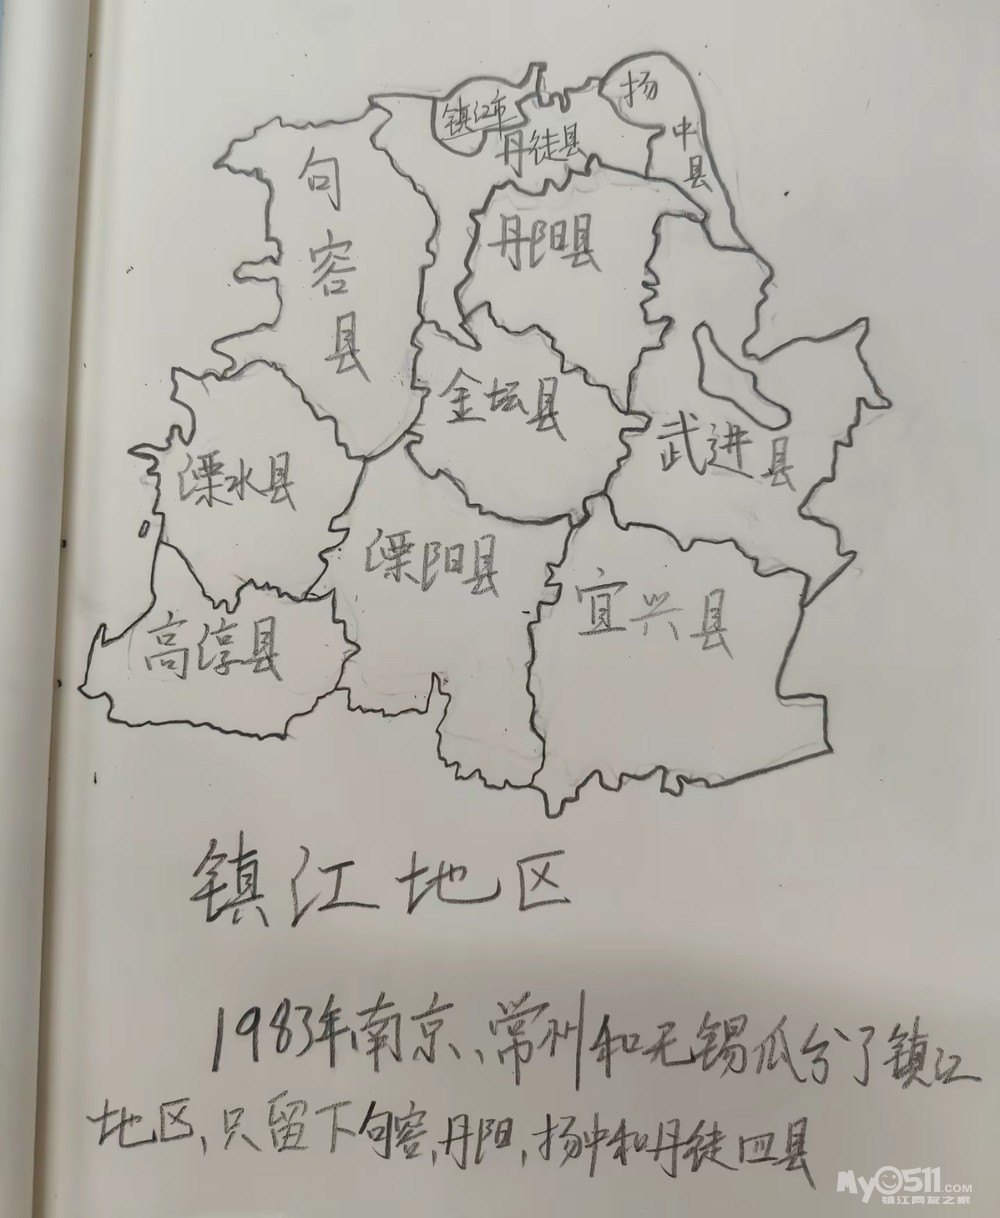 镇江市
扬中县
丹徒县
句容县
丹阳县
金坛县
武进县
溧水县
溧阳县
宜兴县
高淳县
镇江地区
1983年南京、常州和无锡瓜分了镇江
地区,只留下句容,丹阳,扬中和丹徒四县
My0511.COM
镇江网友之家